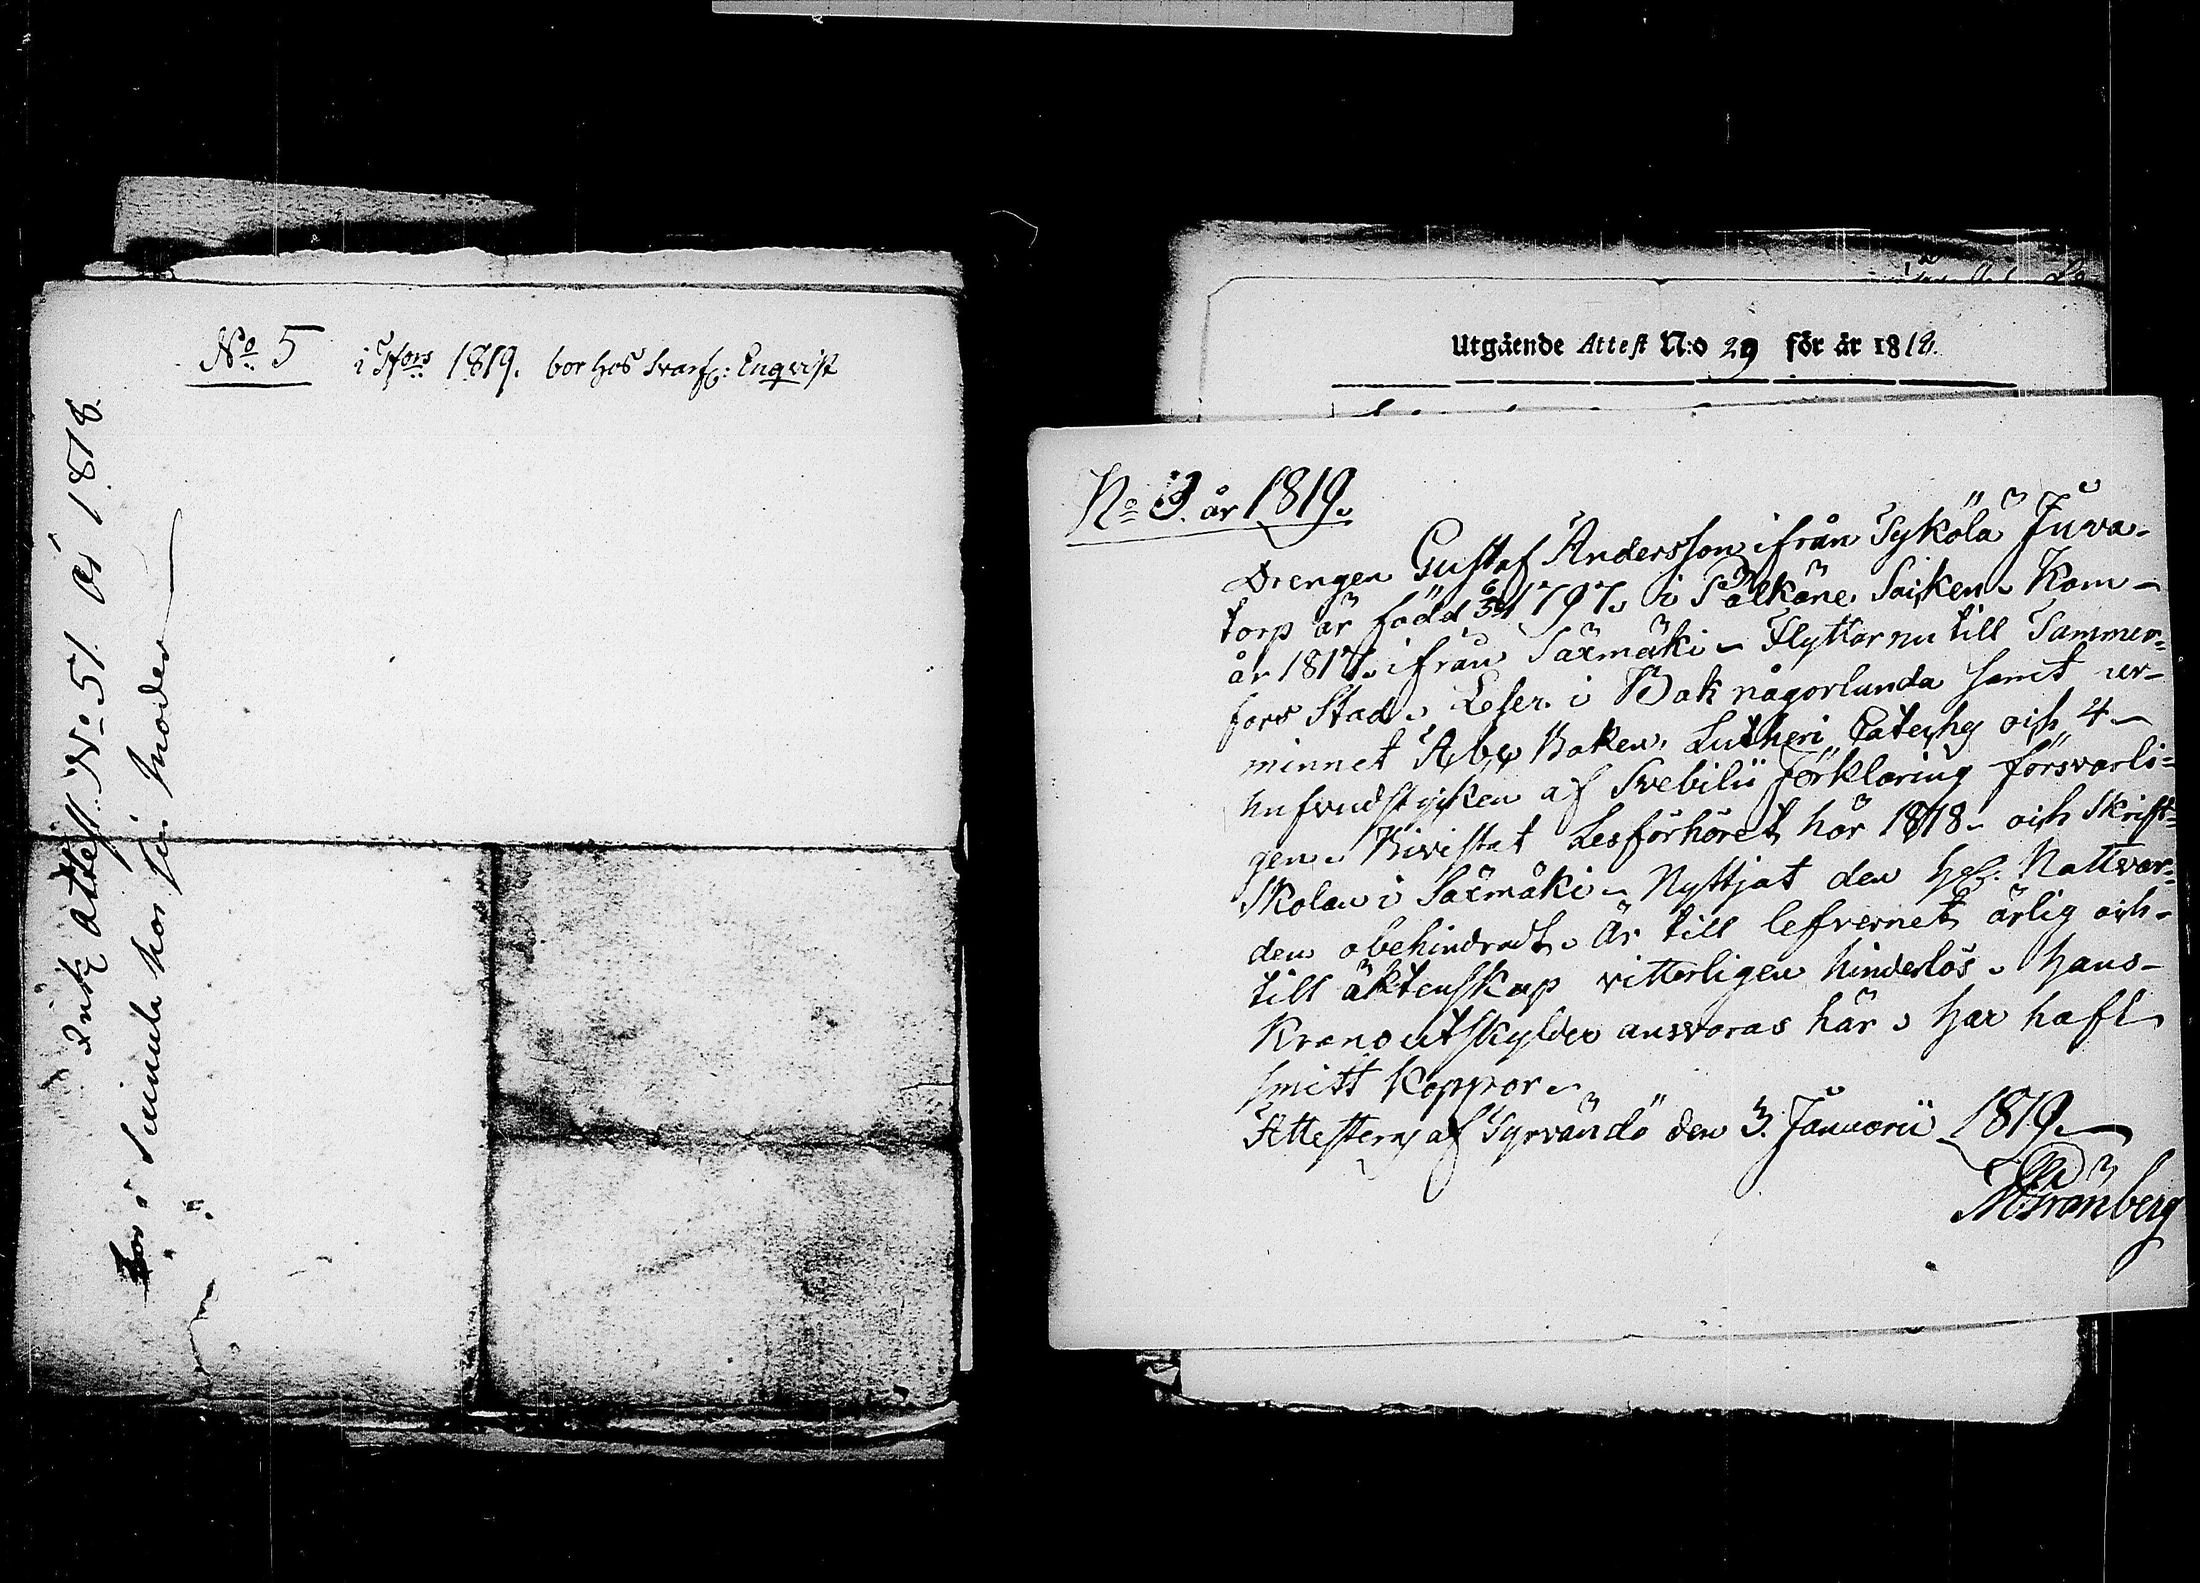 No 5 i Tfors 1819. bor hos Svarf: Enqvist
Ink attest No 51 år 1818
bor i Suinula hos sin moder
Utgående Attest N:o 29 för år 1818.
No 3. år 1819.
Drengen Gustaf Andersson ifrån Sykölä Juva-
torp är född 1797. i Pälkäne Saken. Kom
år 1817. ifrån Säxmäki. Flyttar nu till Tammer-
fors Stad. Läser i Bok någorlunda samt ur
minnet Abc Boken, Lutheri Catechs och 4
hufvudstycken af Svebilii förklaring försvarli-
gen. Bivistat Läsförhöret här 1818. och Skrift-
skolan i Säxmäki. Nyttjat den hel. Nattvar-
den obehindradt. Är till lefvernet ärlig och
till äktenskap vitterligen hinderlös. Hans
Krono utskylder ansvaras här. Har haft
smitt Koppor.
Attesteras af Tyrvändö den 3. Januarii 1819.
Granberg